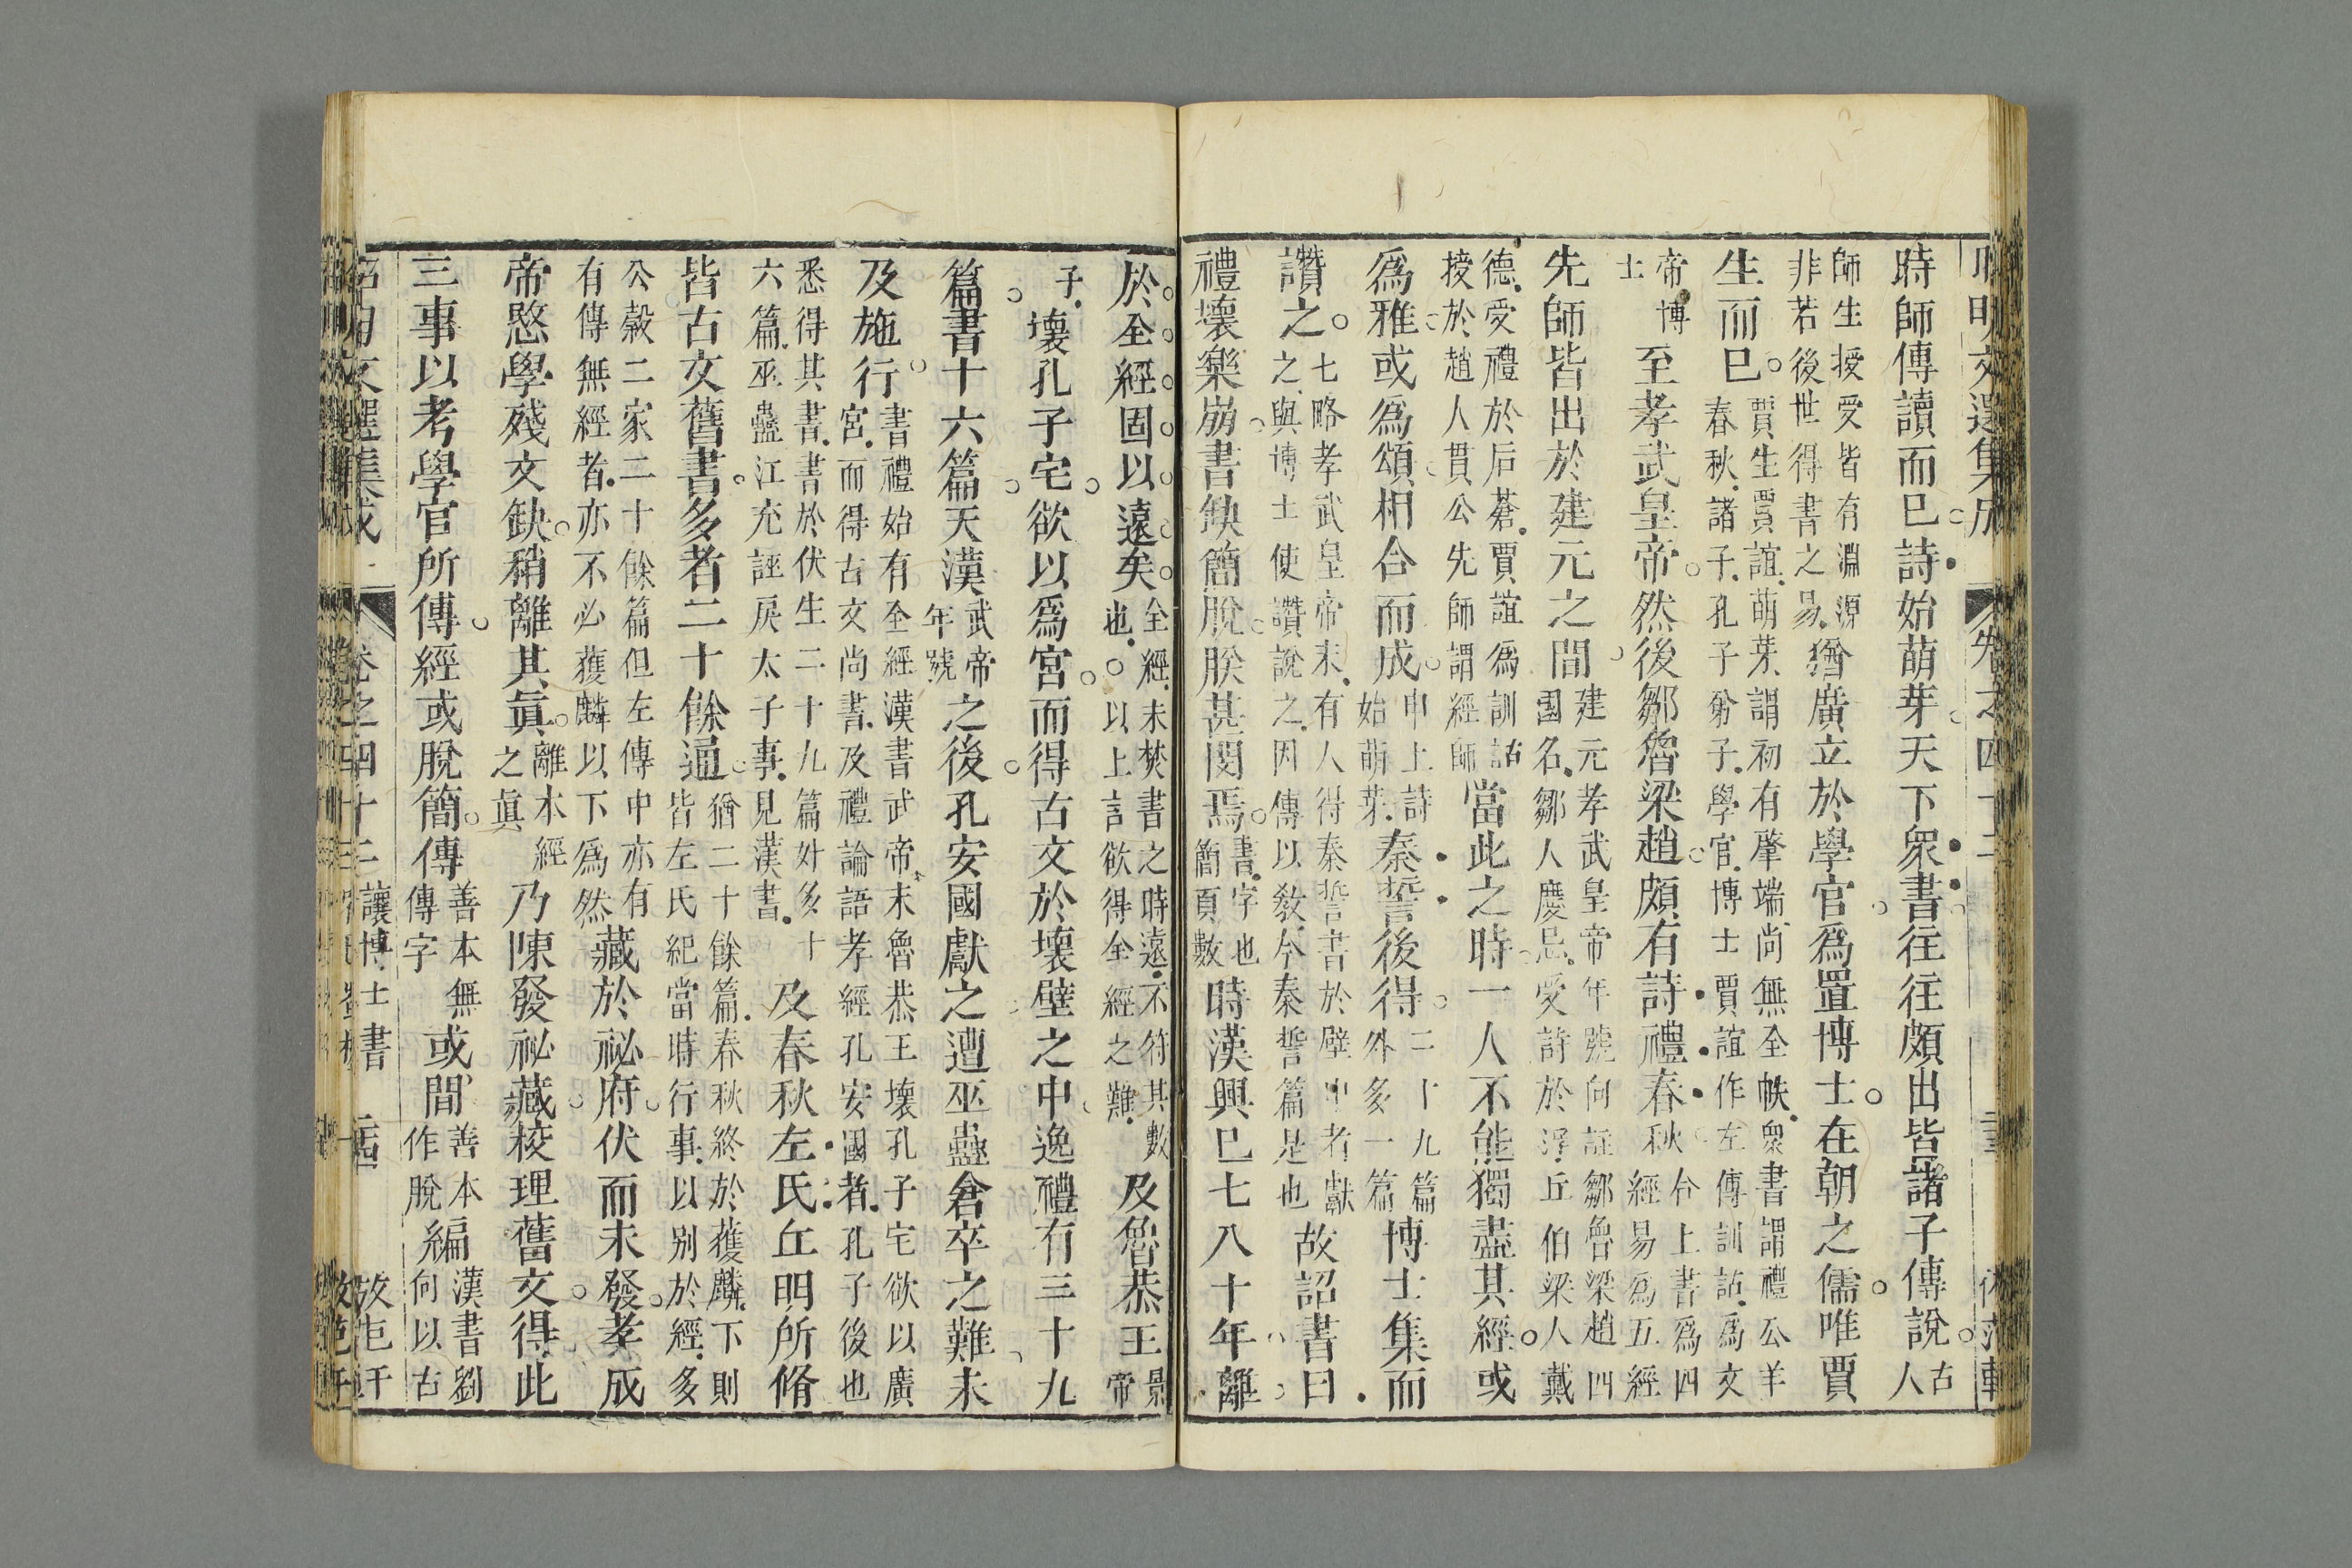 昭明文選集成 卷之四十二
時師傳讀而已詩始萌芽天下衆書往往頗出皆諸子傳說古人
師生授受皆有淵源非若後世得書之易猶廣立於學官爲置博士在朝之儒唯賈
生而已賈生賈誼萌芽謂初有肇端尚無全帙衆書謂禮公羊春秋諸子孔子弟子學官博士賈誼作左傳訓詁爲文
帝博士至孝武皇帝然後鄒魯梁趙頗有詩禮春秋合上書爲四經易爲五經
先師皆出於建元之間建元孝武皇帝年號向註鄒魯梁趙四國名鄒人慶忌受詩於浮丘伯梁人戴
德受禮於后蒼賈誼爲訓詁授於趙人貫公先師謂經師當此之時一人不能獨盡其經或
爲雅或爲頌相合而成申上詩始萌芽秦誓後得二十九篇外多一篇博士集而
讚之七略孝武皇帝末有人得秦誓書於壁中者獻之與博士使讚說之因傳以敎今秦誓篇是也故詔書曰
禮壞樂崩書缺簡脫朕甚閔焉書字也簡頁數時漢興已七八十年離
於全經固以遠矣全經未焚書之時遠不符其數也。以上言欲得全經之難及魯恭王景帝
子壞孔子宅欲以爲宮而得古文於壞壁之中逸禮有三十九
篇書十六篇天漢武帝年號之後孔安國獻之遭巫蠱倉卒之難未
及施行書禮始有全經漢書武帝末魯恭王壞孔子宅欲以廣宮而得古文尚書及禮論語孝經孔安國者孔子後也
悉得其書書於伏生二十九篇外多十六篇巫蠱江充誣戾太子事見漢書及春秋左氏丘明所脩
皆古文舊書多者二十餘通猶二十餘篇春秋終於獲麟下則皆左氏紀當時行事以別於經多
公穀二家二十餘篇但左傳中亦有有傳無經者亦不必獲麟以下爲然藏於祕府伏而未發孝成
帝愍學殘文缺稍離其眞離本經之眞乃陳發祕藏校理舊文得此
三事以考學官所傳經或脫簡傳善本無傳字或間善本作脫編漢書劉何以古
昭明文選集成 卷之四十二 讓博士書